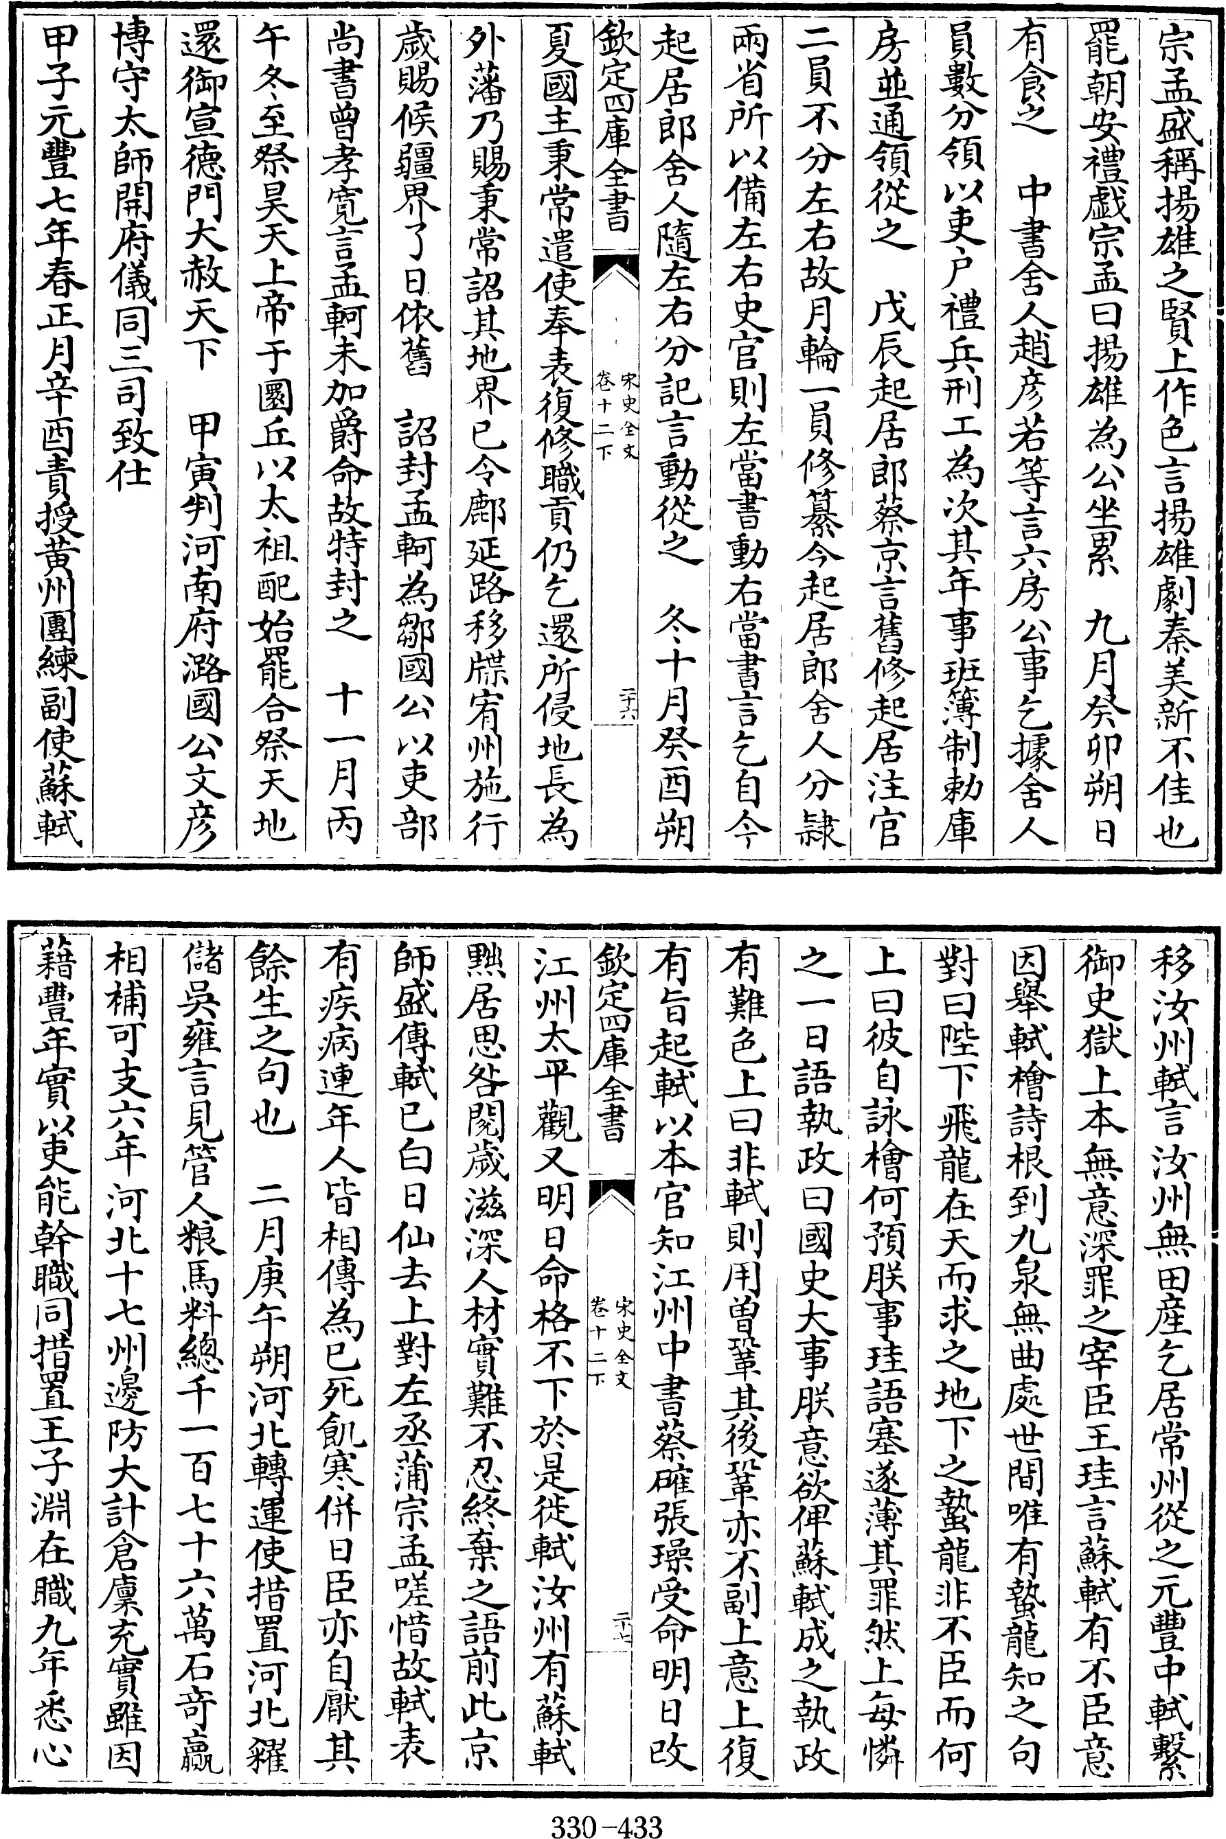 宗孟盛稱揚雄之賢上作色言揚雄劇秦美新不佳也
罷朝安禮戲宗孟曰揚雄為公坐累　九月癸卯朔日
有食之　中書舍人趙彥若等言六房公事乞據舍人
員數分領以吏户禮兵刑工為次其年事班簿制勅庫
房並通領從之　戊辰起居郎蔡京言舊修起居注官
二員不分左右故月輪一員修纂今起居郎舍人分隸
兩省所以備左右史官則左當書動右當書言乞自今
起居郎舍人隨左右分記言動從之　冬十月癸酉朔
欽定四庫全書
宋史全文
卷十二下
二十六
夏國主秉常遣使奉表復修職貢仍乞還所侵地長為
外藩乃賜秉常詔其地界已令鄜延路移牒宥州施行
歲賜候疆界了日依舊　詔封孟軻為鄒國公以吏部
尚書曾孝寬言孟軻未加爵命故特封之　十一月丙
午冬至祭昊天上帝于圜丘以太祖配始罷合祭天地
還御宣德門大赦天下　甲寅判河南府潞國公文彦
博守太師開府儀同三司致仕
甲子元豐七年春正月辛酉責授黃州團練副使蘇軾
移汝州軾言汝州無田產乞居常州從之元豐中軾繫
御史獄上本無意深罪之宰臣王珪言蘇軾有不臣意
因舉軾檜詩根到九泉無曲處世間唯有蟄龍知之句
對曰陛下飛龍在天而求之地下之蟄龍非不臣而何
上曰彼自詠檜何預朕事珪語塞遂薄其罪然上每憐
之一日語執政曰國史大事朕意欲俾蘇軾成之執政
有難色上曰非軾則用曾鞏其後鞏亦不副上意上復
有旨起軾以本官知江州中書蔡確張璪受命明日改
欽定四庫全書
宋史全文
卷十二下
二十七
江州太平觀又明日命格不下於是徙軾汝州有蘇軾
黜居思咎閱歲滋深人材實難不忍終棄之語前此京
師盛傳軾已白日仙去上對左丞蒲宗孟嗟惜故軾表
有疾病連年人皆相傳為已死飢寒併日臣亦自厭其
餘生之句也　二月庚午朔河北轉運使措置河北糴
儲吳雍言見管人粮馬料總千一百七十六萬石奇贏
相補可支六年河北十七州邊防大計倉廩充實雖因
藉豐年實以吏能幹職同措置王子淵在職九年悉心
330-433